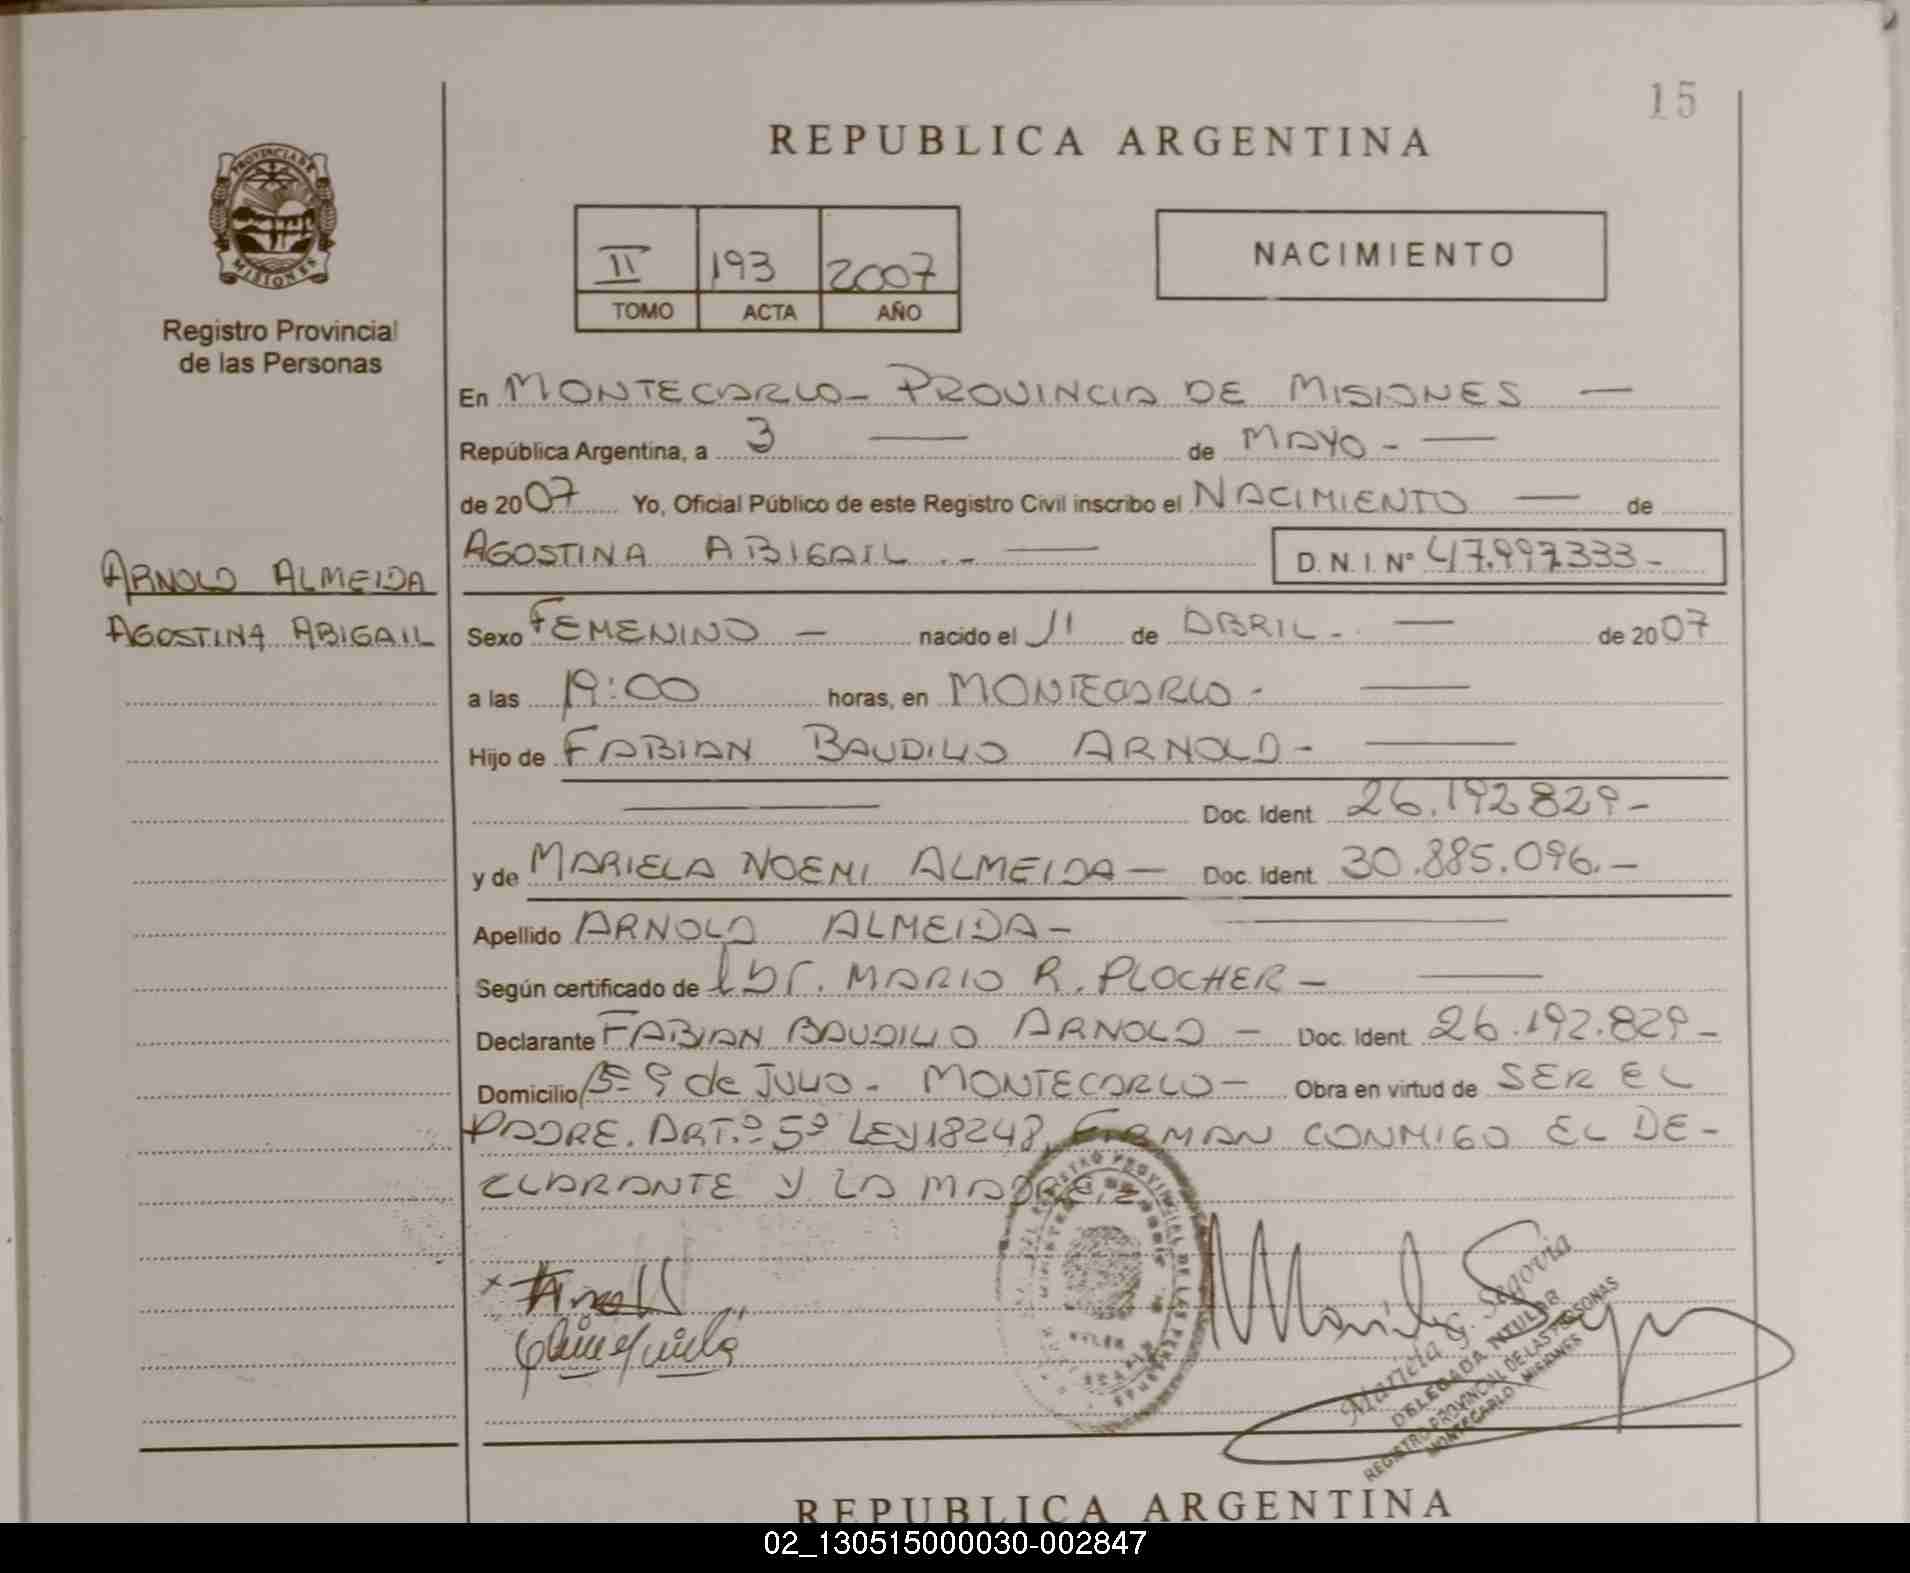 15
REPUBLICA ARGENTINA
PROVINCIA DE
MISIONES
Registro Provincial
de las Personas
II 193 2007
TOMO ACTA AÑO
NACIMIENTO
En MONTECARLO - PROVINCIA DE MISIONES —
República Argentina, a 3 — de MAYO - —
de 2007 Yo, Oficial Público de este Registro Civil inscribo el NACIMIENTO — de
AGOSTINA ABIGAIL . - — D. N. I. N° 47.997.333 -
ARNOLD ALMEIDA
AGOSTINA ABIGAIL
Sexo FEMENINO — nacido el 11 de ABRIL - — de 2007
a las 19:00 horas, en MONTECARLO - —
Hijo de FABIAN BAUDILIO ARNOLD - —
— Doc. Ident. 26.192829 -
y de MARIELA NOEMI ALMEIDA — Doc. Ident. 30.885.096. —
Apellido ARNOLD ALMEIDA - —
Según certificado de Dr. MARIO R. PLOCHER - —
Declarante FABIAN BAUDILIO ARNOLD - Doc. Ident. 26.192.829 -
Domicilio Bº 9 de JULIO - MONTECARLO - Obra en virtud de SER EL
PADRE. ART.º 5º LEY 18248. FIRMAN CONMIGO EL DE-
CLARANTE Y LA MADRE.
Maricia G. Segovia
DELEGADA TITULAR
REGISTRO PROVINCIAL DE LAS PERSONAS
MONTECARLO - MISIONES
REPUBLICA ARGENTINA
02_130515000030-002847